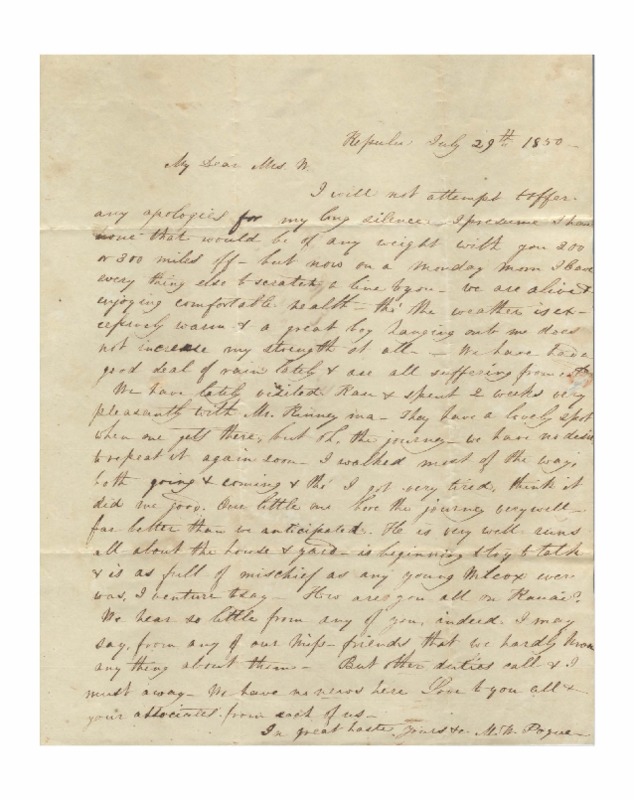 Kepulu July 29th 1850 -
My Dear Mrs W.
I will not attempt to offer
any apologies for my long silence - I presume I have
none that would be of any weight with you 200
or 300 miles off - but now on a Monday morn I leave
every thing else to scratch a line to you - we are alive &
enjoying comfortable health - tho' the weather is ex-
cessively warm & a great boy hanging onto me does
not increase my strength at all - We have had a
good deal of rain lately & are all suffering from
We have lately visited Kau & spent 2 weeks very
pleasantly with Mr. Kinney ma - They have a lovely spot
when one gets there, but oh, the journey - we have no desire
to repeat it again soon - I walked most of the way,
both going & coming & tho' I got very tired, think it
did me good. Our little one bore the journey very well -
far better than we anticipated. He is very well runs
all about the house & yard - is beginning to try to talk
& is as full of mischief as any young Wilcox ever
was, I venture to say - How are you all on Kauai?
We hear so little from any of you, indeed I may
say, from any of our Miss. friends that we hardly know
any thing about them - But other duties call & I
must away - We have no news here Love to you all &
your associates from each of us -
In great haste, yours &c. M. W. Pogue -